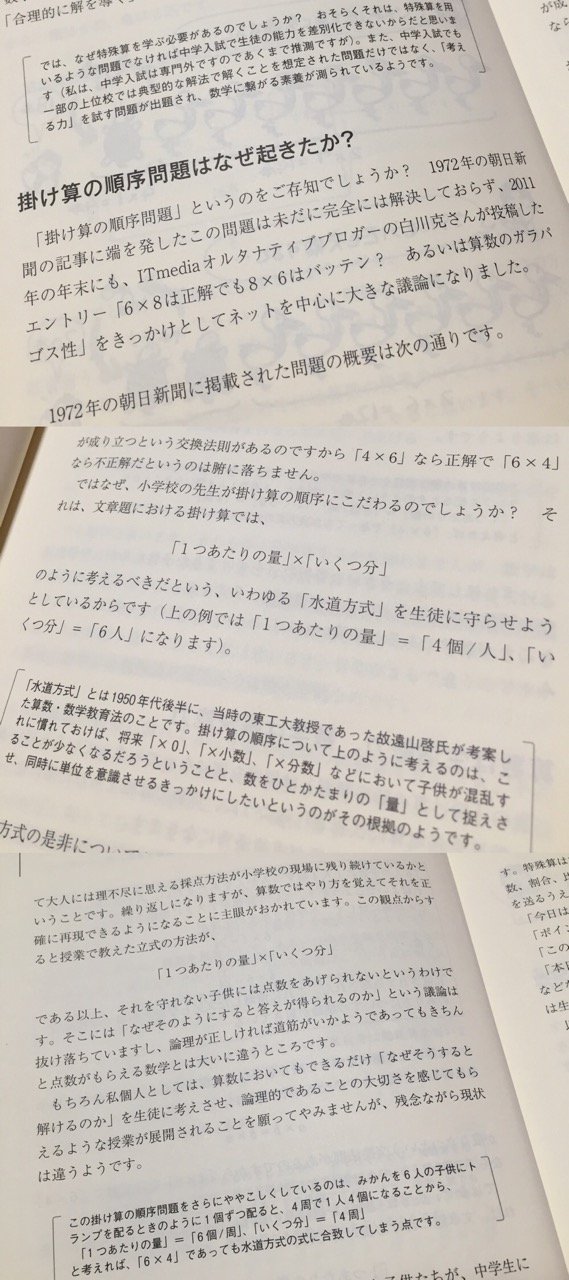 「合理的に解を導く
では、なぜ特殊算を学ぶ必要があるのでしょうか？　おそらくそれは、特殊算を用
いるような問題でなければ中学入試で生徒の能力を差別化できないからだと思いま
す（私は、中学入試は専門外ですのであくまで推測ですが）。また、中学入試でも
一部の上位校では典型的な解法で解くことを想定された問題だけではなく、「考え
る力」を試す問題が出題され、数学に繋がる素養が測られているようです。
掛け算の順序問題はなぜ起きたか？
「掛け算の順序問題」というのをご存知でしょうか？　1972年の朝日新
聞の記事に端を発したこの問題は未だに完全には解決しておらず、2011
年の年末にも、ITmediaオルタナティブブロガーの白川克さんが投稿した
エントリー「6×8は正解でも8×6はバッテン？　あるいは算数のガラパ
ゴス性」をきっかけとしてネットを中心に大きな議論になりました。
1972年の朝日新聞に掲載された問題の概要は次の通りです。
が成り立つという交換法則があるのですから「4×6」なら正解で「6×4」
なら不正解だというのは腑に落ちません。
ではなぜ、小学校の先生が掛け算の順序にこだわるのでしょうか？　そ
れは、文章題における掛け算では、
「1つあたりの量」×「いくつ分」
のように考えるべきだという、いわゆる「水道方式」を生徒に守らせよう
としているからです（上の例では「1つあたりの量」＝「4個/人」、「い
くつ分」＝「6人」になります）。
「水道方式」とは1950年代後半に、当時の東工大教授であった故遠山啓氏が考案し
た算数・数学教育法のことです。掛け算の順序について上のように考えるのは、こ
れに慣れておけば、将来「×0」、「×小数」、「×分数」などにおいて子供が混乱す
ることが少なくなるだろうということと、数をひとかたまりの「量」として捉えさ
せ、同時に単位を意識させるきっかけにしたいというのがその根拠のようです。
方式の是非につい
て大人には理不尽に思える採点方法が小学校の現場に残り続けているかと
いうことです。繰り返しになりますが、算数ではやり方を覚えてそれを正
確に再現できるようになることに主眼がおかれています。この観点からす
ると授業で教えた立式の方法が、
「1つあたりの量」×「いくつ分」
である以上、それを守れない子供には点数をあげられないというわけで
す。そこには「なぜそのようにすると答えが得られるのか」という議論は
抜け落ちていますし、論理が正しければ道筋がいかようであってもきちん
と点数がもらえる数学とは大いに違うところです。
もちろん私個人としては、算数においてもできるだけ「なぜそうすると
解けるのか」を生徒に考えさせ、論理的であることの大切さを感じてもら
えるような授業が展開されることを願ってやみませんが、残念ながら現状
は違うようです。
この掛け算の順序問題をさらにややこしくしているのは、みかんを6人の子供にト
ランプを配るときのように1個ずつ配ると、4周で1人4個になることから、
「1つあたりの量」＝「6個/周」、「いくつ分」＝「4周」
と考えれば、「6×4」であっても水道方式の式に合致してしまう点です。
子供たちが、中学生に
す。特殊算は
数、割合、比
を送るうえ
「今日は
「ポイン
「この
「本日
などな
は生